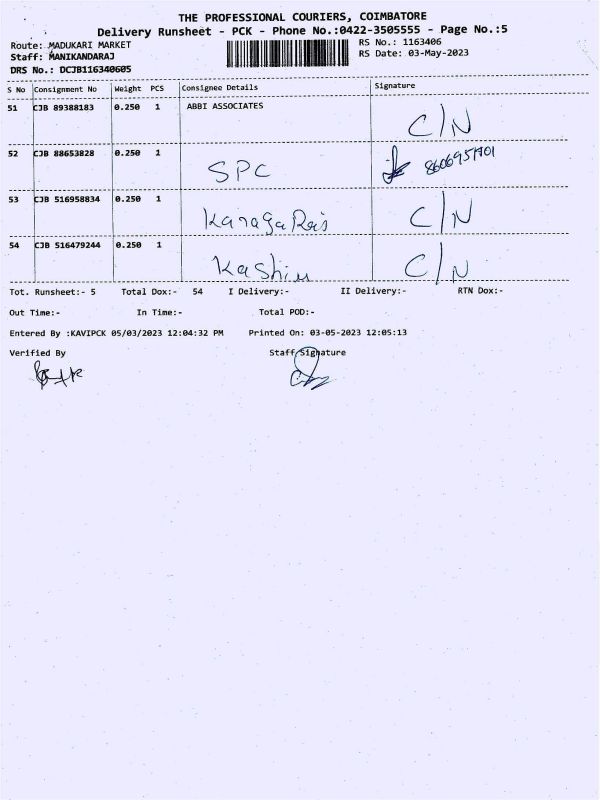 THE PROFESSIONAL COURIERS, COIMBATORE
Delivery Runsheet - PCK - Phone No.:0422-3505555 - Page No.:5
Route: MADUKARI MARKET
RS No.: 1163406
Staff: MANIKANDARAJ
RS Date: 03-May-2023
DRS No.: DCJB116340605
S No Consignment No Weight PCS Consignee Details Signature
51 CJB 89388183 0.250 1 ABBI ASSOCIATES
C/N
52 CJB 88653828 0.250 1
SPC
53 CJB 516958834 0.250 1
C/N
54 CJB 516479244 0.250 1
Kashim C/N
Tot. Runsheet:- 5 Total Dox:- 54 I Delivery:- II Delivery:- RTN Dox:-
Out Time:- In Time:- Total POD:-
Entered By :KAVIPCK 05/03/2023 12:04:32 PM Printed On: 03-05-2023 12:05:13
Verified By Staff Signature